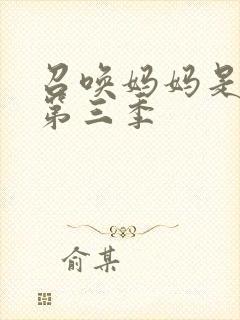 召唤妈妈是
第三季
俞某